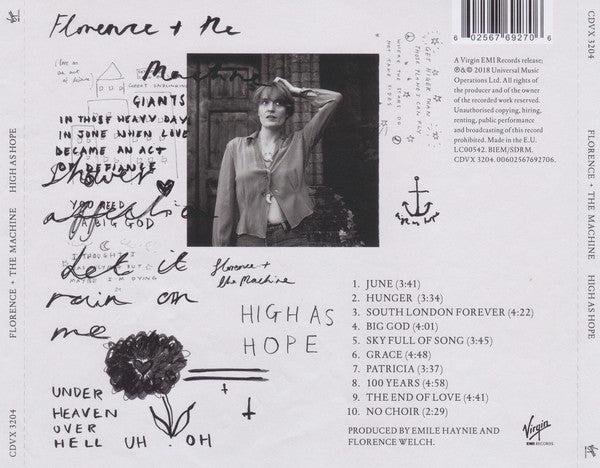 Florence + the
Machine
GIANTS
IN THOSE HEAVY DAYS
IN JUNE WHEN LOVE
BECAME AN ACT
OF DEFIANCE
Shower
affection
YOU NEED
A BIG GOD
Let it
rain on
me
UNDER
HEAVEN
OVER
HELL
UH OH
Florence +
the Machine
HIGH AS
HOPE
GET HIGHER THAN
WHERE THE STARS DO
NOT TAKE SIDES
6 02567 69270 6
A Virgin EMI Records release;
℗&© 2018 Universal Music
Operations Ltd. All rights of
the producer and of the owner
of the recorded work reserved.
Unauthorised copying, hiring,
renting, public performance
and broadcasting of this record
prohibited. Made in the E.U.
LC00542. BIEM/SDRM.
CDVX 3204. 00602567692706.
1. JUNE (3:41)
2. HUNGER (3:34)
3. SOUTH LONDON FOREVER (4:22)
4. BIG GOD (4:01)
5. SKY FULL OF SONG (3:45)
6. GRACE (4:48)
7. PATRICIA (3:37)
8. 100 YEARS (4:58)
9. THE END OF LOVE (4:41)
10. NO CHOIR (2:29)
PRODUCED BY EMILE HAYNIE AND
FLORENCE WELCH.
Virgin
EMI RECORDS
CDVX 3204 FLORENCE + THE MACHINE HIGH AS HOPE
CDVX 3204 FLORENCE + THE MACHINE HIGH AS HOPE